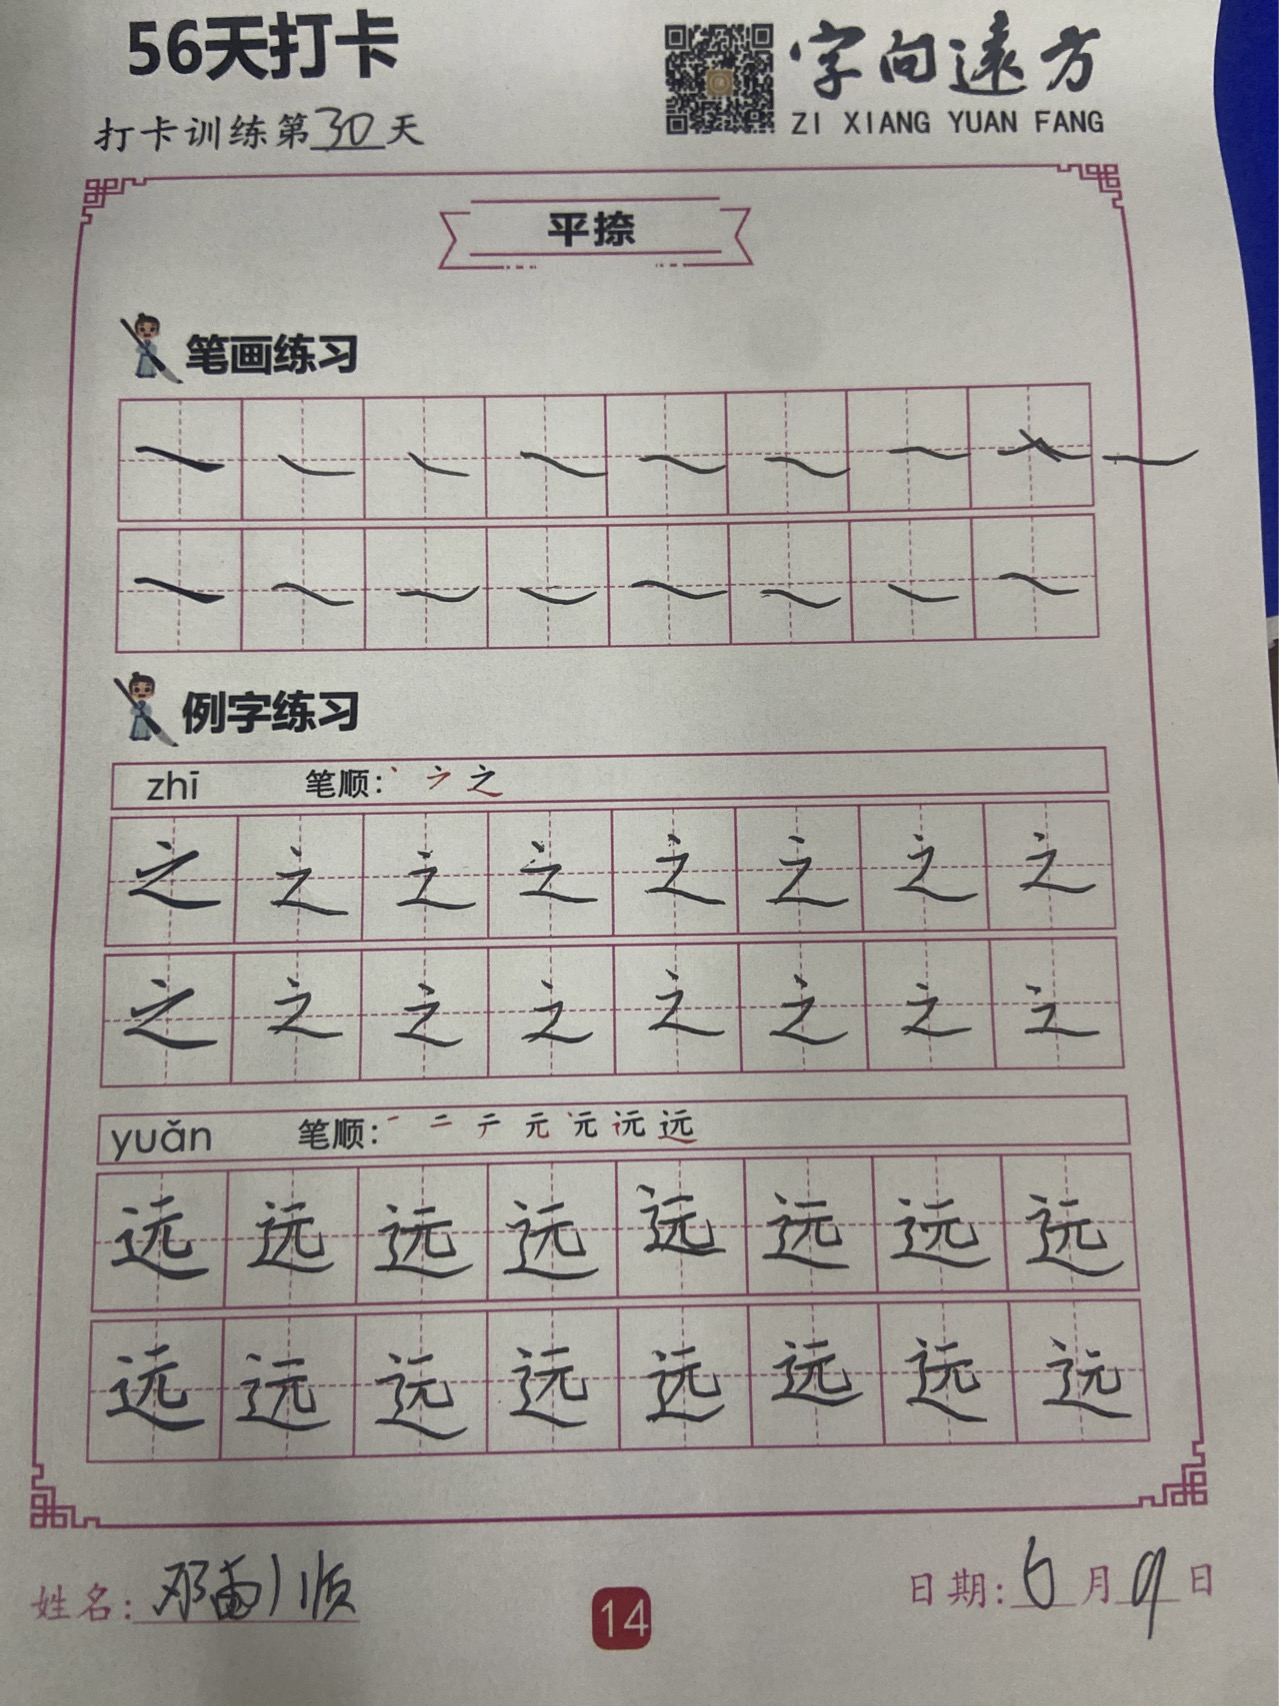 56天打卡
字向遠方
ZI XIANG YUAN FANG
打卡训练第30天
平捺
笔画练习
例字练习
zhī 笔顺: 之
之 之 之 之 之 之 之 之
之 之 之 之 之 之 之 之
yuǎn 笔顺: 一 二 亍 元 远
远 远 远 远 远 远 远 远
远 远 远 远 远 远 远 远
姓名: 邓
日期: 6月9日
14